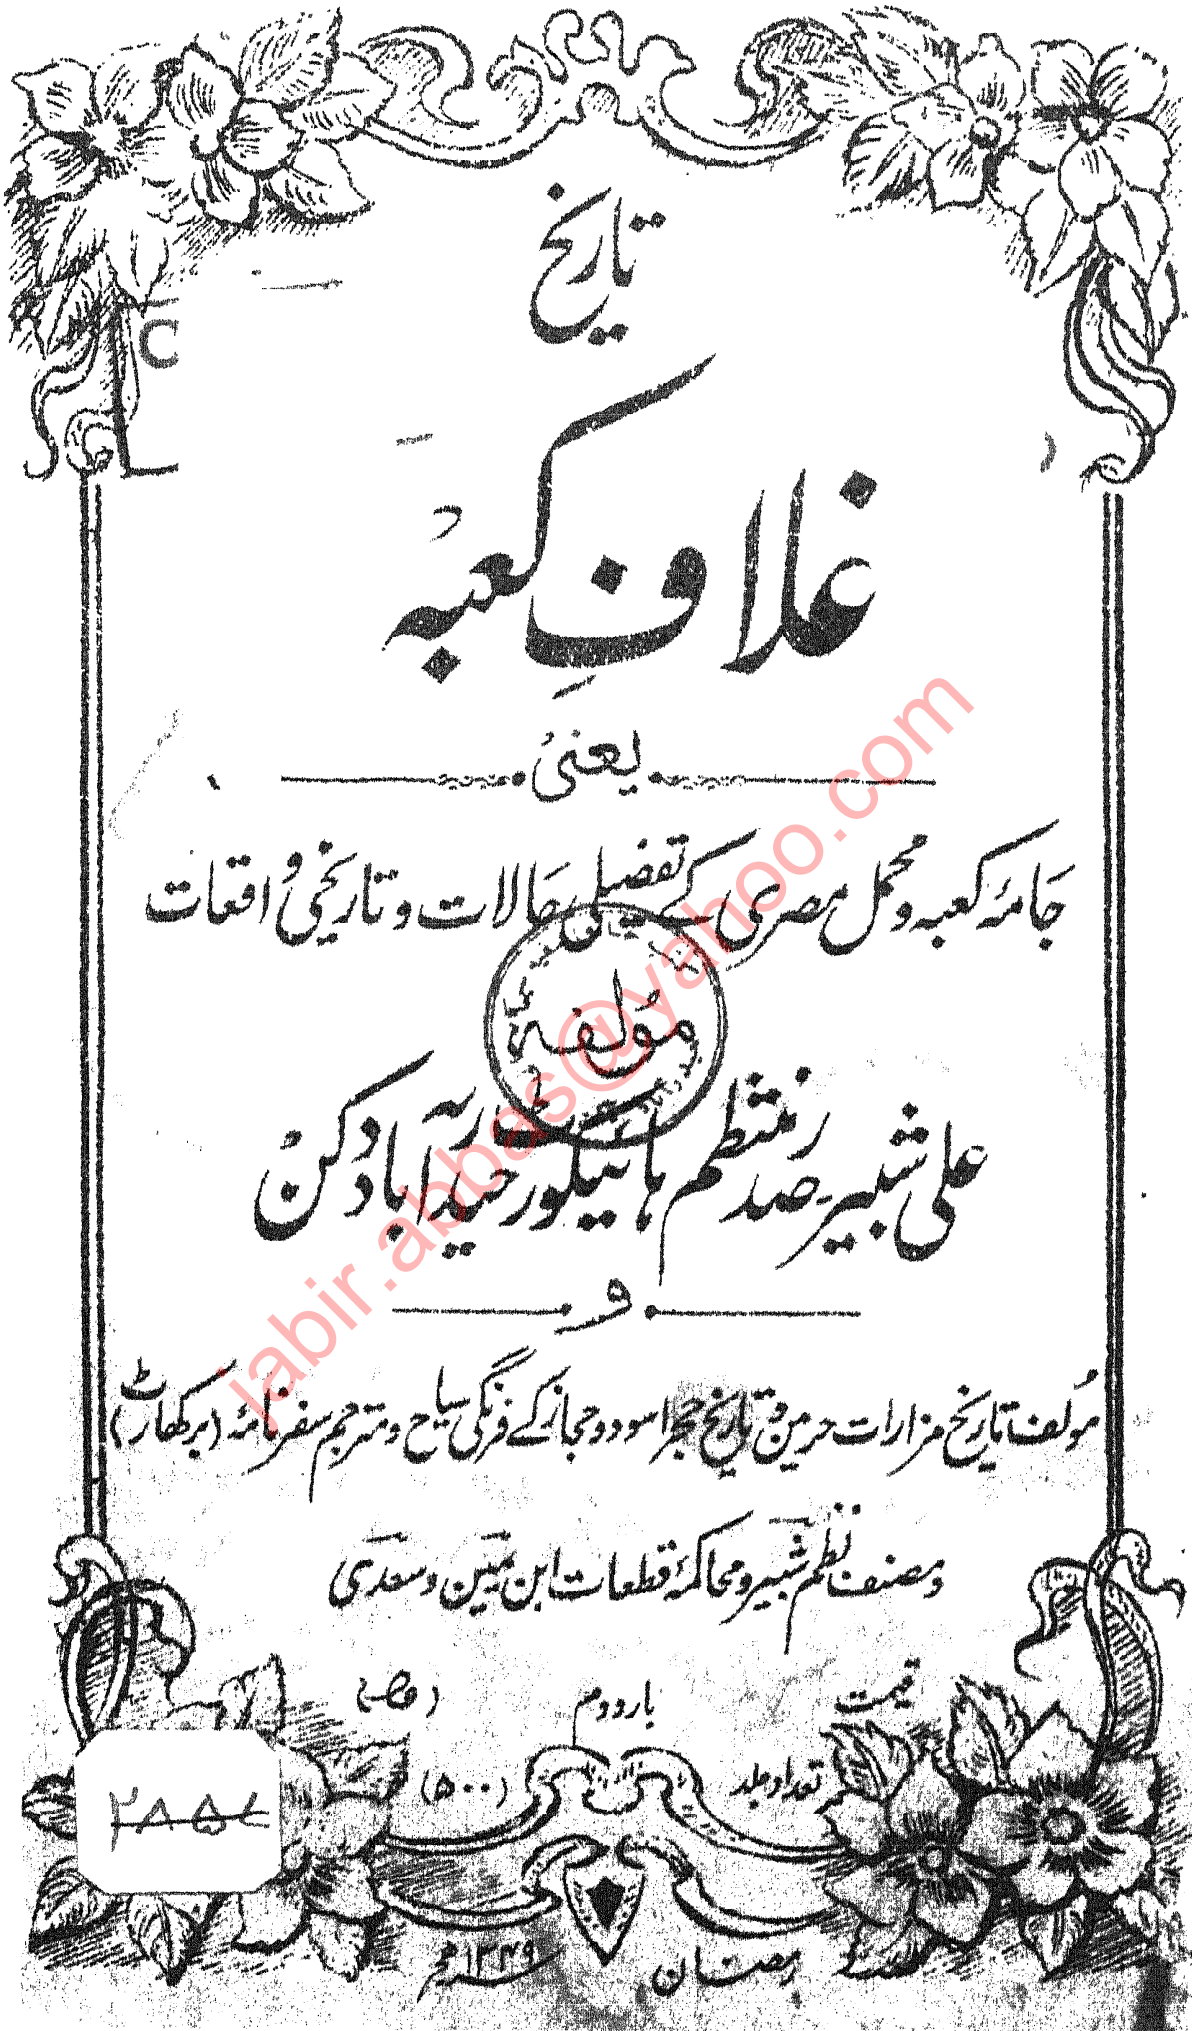 تاریخ
غلافِ کعبہ
یعنی
جامۂ کعبہ و محمل مصری کے تفصیلی حالات و تاریخی واقعات
مؤلفہ
علی شبیر صدر منتظم ہائیکورٹ حیدرآباد دکن
و
مؤلف تاریخ مزارات حرمین و تاریخ حجر اسود و حجاز کے فرنگی سیاح و مترجم سفرنامۂ (برکھارٹ)
و مصنف نظم شبیر و محاکمۂ قطعات ابن یمین و سعدی
قیمت
بار دوم
تعداد جلد
(۵۰۰)
رمضان
۱۳۴۹
jabir.abbas@yahoo.com